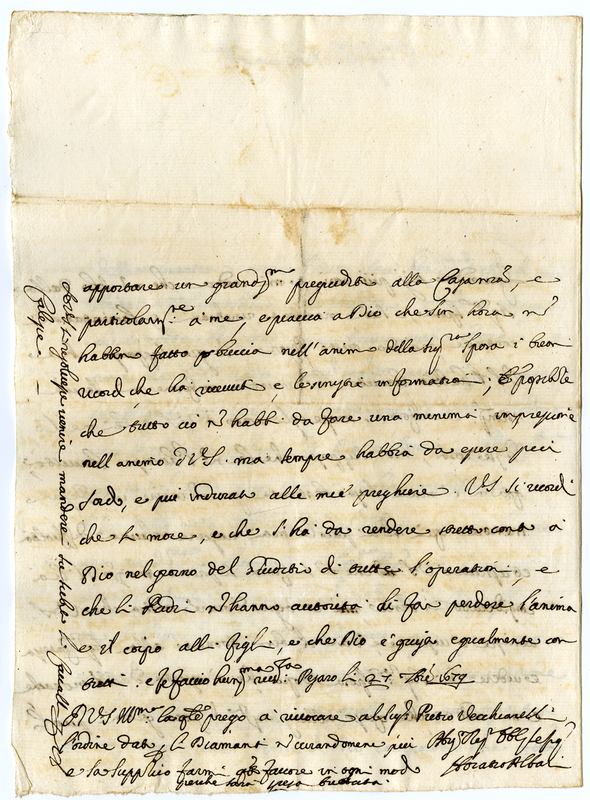 apportare un grandm: pregiuditio alla Casa nra, e
particolarmte: a me, e piaccia a Dio che sin hora nō
habbin fatto breccia nell'animo della Sigra Sposa i
ricordi, che ha ricevuti, e le sinistre informationi; è possibile
che tutto ciò nō habbi da fare una minima impressione
nell'animo di V.S. ma sempre habbia da essere più
sordo, e più indurata alle mie preghiere. V.S. si ricordi
che si more, e che si ha da rendere stretto conto a
Dio nel giorno del Giuditio di tutte l'operationi, e
che li Padri nō hanno autorità di far perdere l'anima
e il corpo alli figli, e che Dio è giusto egualmente con
tutti. e le faccio humma riva: Pesaro li 27 1679
D V.S. Illma la qle prego a rivocare al Sigr Pietro Vecchiarelli
l'ordine dato, li Diamanti nō curandomene più
e la supplico farmi qto favore in ogni modo
perche sarà
Horatio Albani
venire mandare su subito li Cavalli
Calepe.